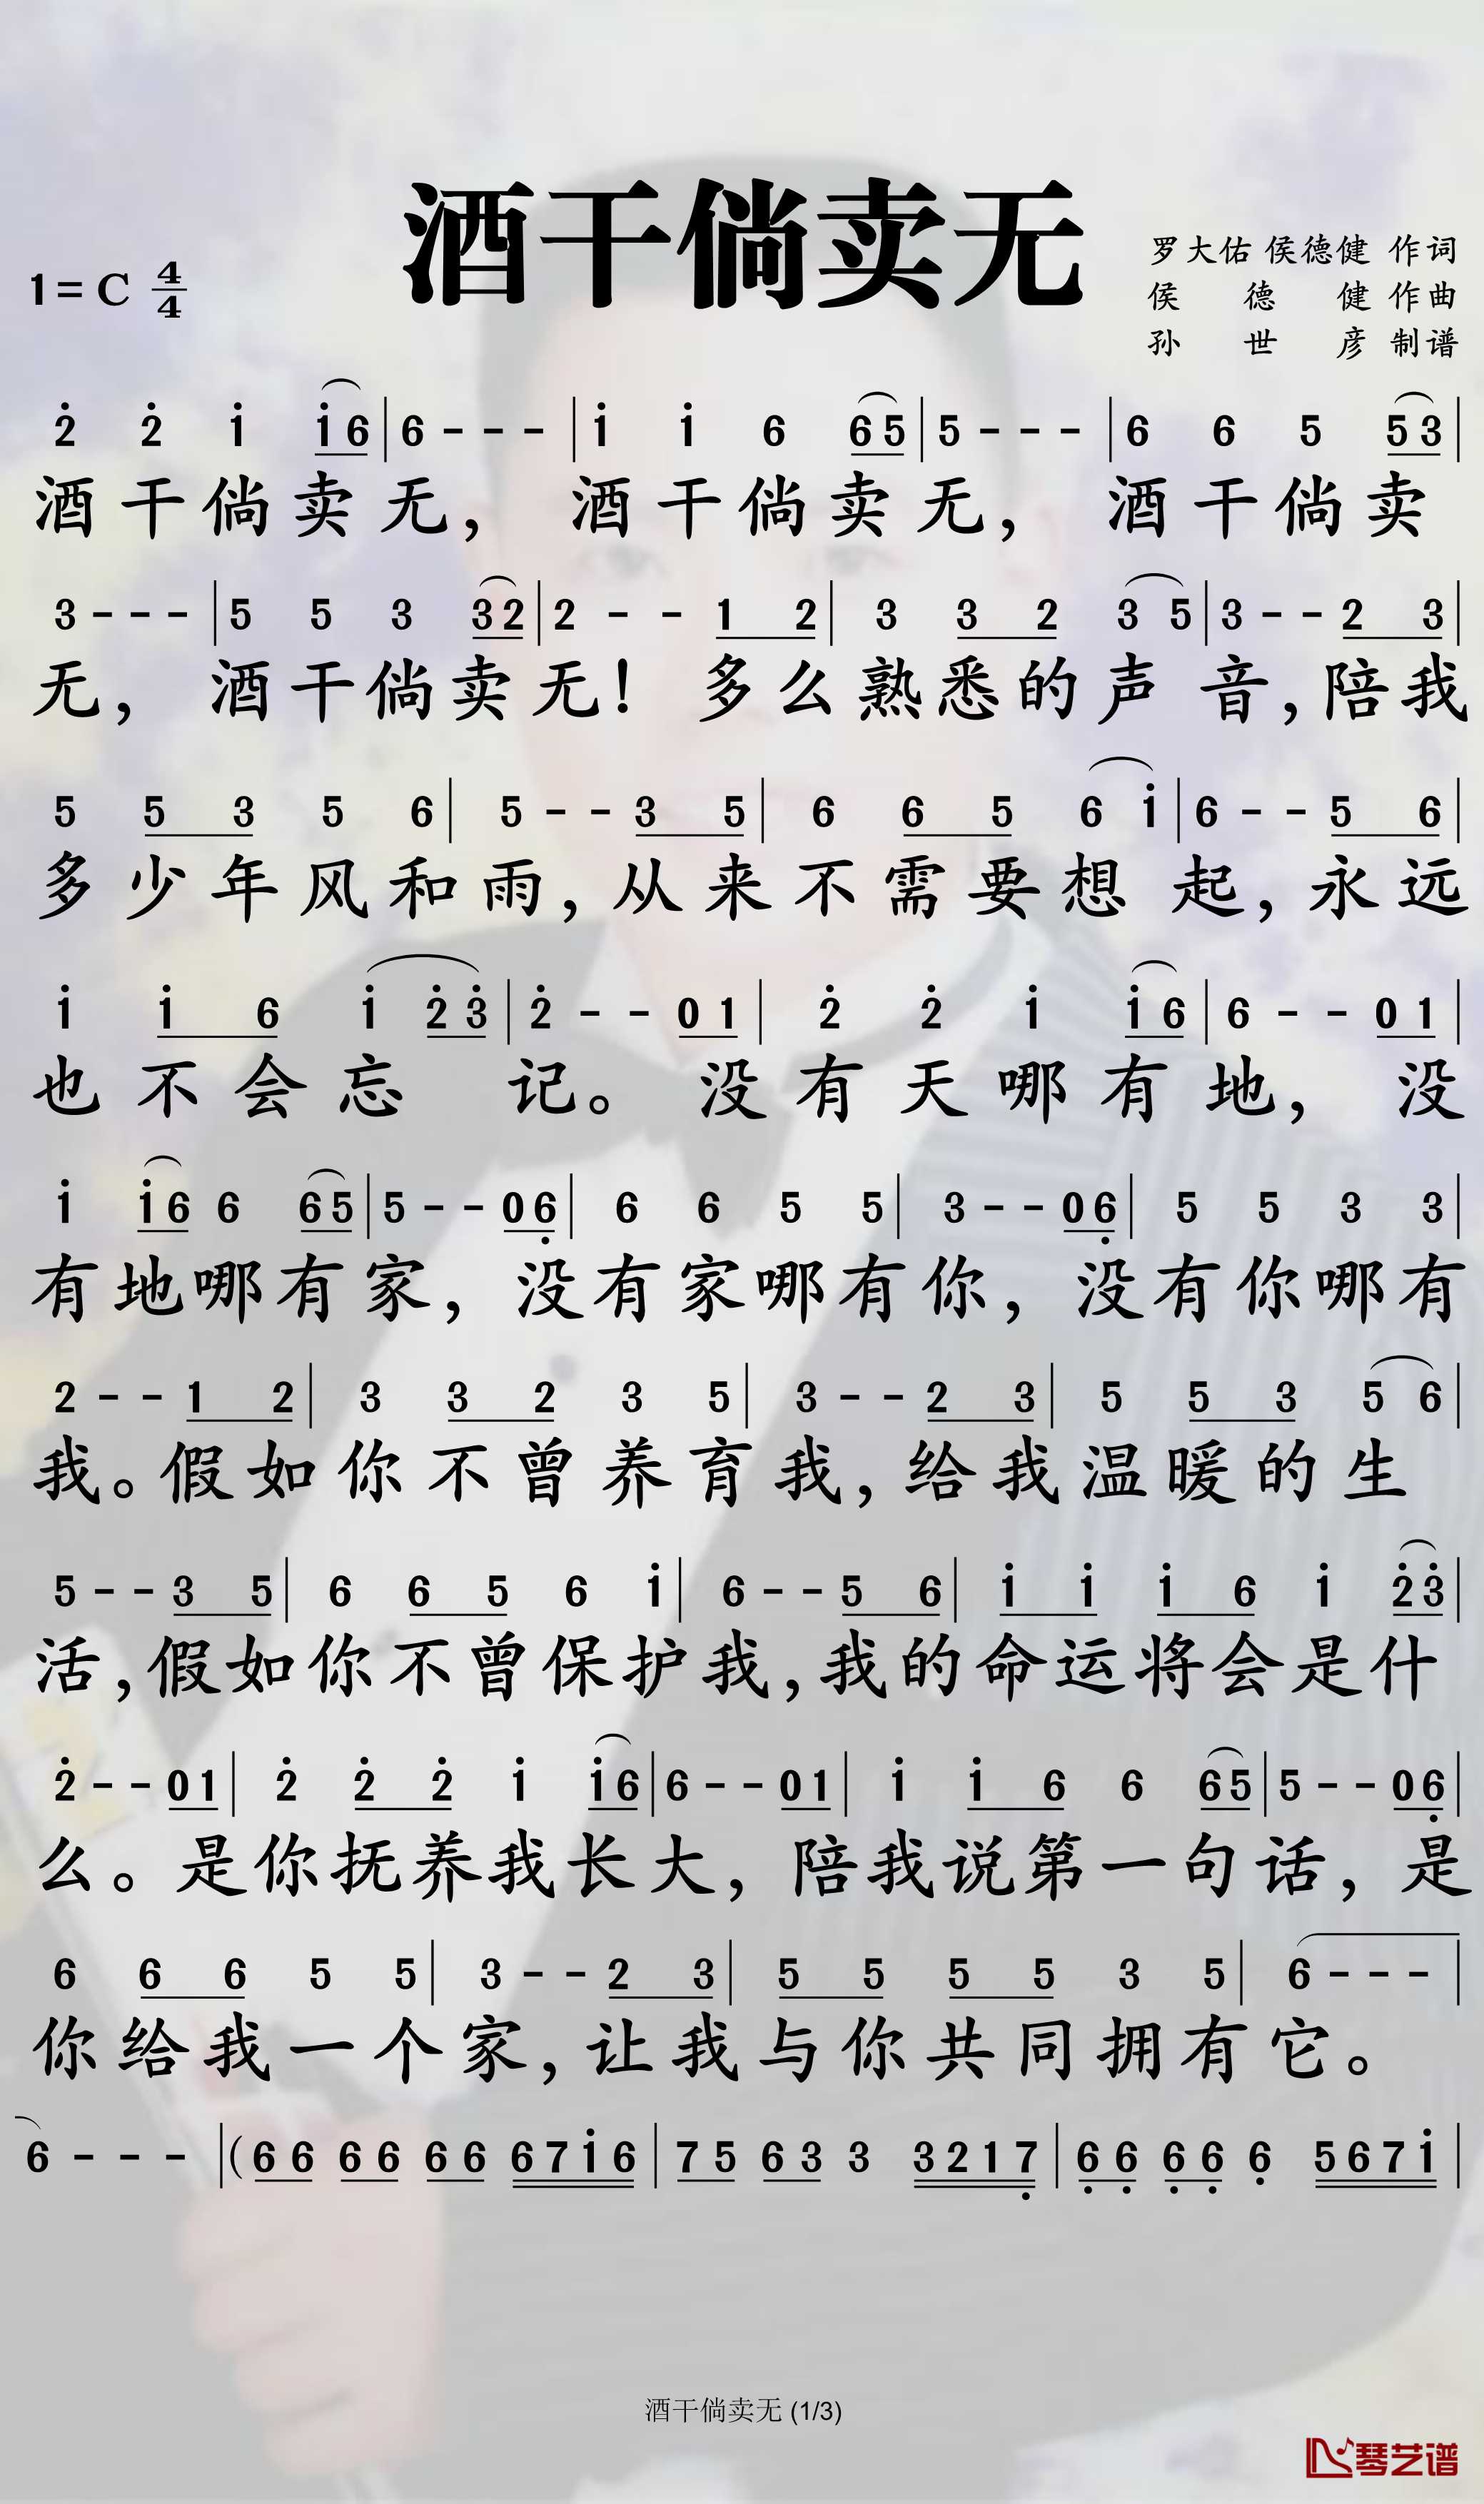 酒干倘卖无
1=C 4/4
罗大佑 侯德健 作词
侯德健 作曲
孙世彦 制谱
2̇ 2̇ 1̇ 1̇6 | 6 - - - | 1̇ 1̇ 6 65 | 5 - - - | 6 6 5 53 |
酒干倘卖无，酒干倘卖无，酒干倘卖
3 - - - | 5 5 3 32 | 2 - - 1 2 | 3 3 2 3 5 | 3 - - 2 3 |
无，酒干倘卖无！多么熟悉的声音，陪我
5 5 3 5 6 | 5 - - 3 5 | 6 6 5 6 1̇ | 6 - - 5 6 |
多少年风和雨，从来不需要想起，永远
1̇ 1̇ 6 1̇ 2̇3̇ | 2̇ - - 01 | 2̇ 2̇ 1̇ 1̇6 | 6 - - 01 |
也不会忘记。没有天哪有地，没
1̇ 1̇6 6 65 | 5 - - 06̣ | 6 6 5 5 | 3 - - 06̣ | 5 5 3 3 |
有地哪有家，没有家哪有你，没有你哪有
2 - - 1 2 | 3 3 2 3 5 | 3 - - 2 3 | 5 5 3 5 6 |
我。假如你不曾养育我，给我温暖的生
5 - - 3 5 | 6 6 5 6 1̇ | 6 - - 5 6 | 1̇ 1̇ 1̇ 6 1̇ 2̇3̇ |
活，假如你不曾保护我，我的命运将会是什
2̇ - - 01 | 2̇ 2̇ 2̇ 1̇ 1̇6 | 6 - - 01 | 1̇ 1̇ 6 6 65 | 5 - - 06̣ |
么。是你抚养我长大，陪我说第一句话，是
6 6 6 5 5 | 3 - - 2 3 | 5 5 5 5 3 5 | 6 - - - |
你给我一个家，让我与你共同拥有它。
6 - - - | (66 66 66 671̇6 | 75 63 3 3217̣ | 6̣6̣ 6̣6̣ 6̣ 5671̇ |
酒干倘卖无 (1/3)
琴艺谱